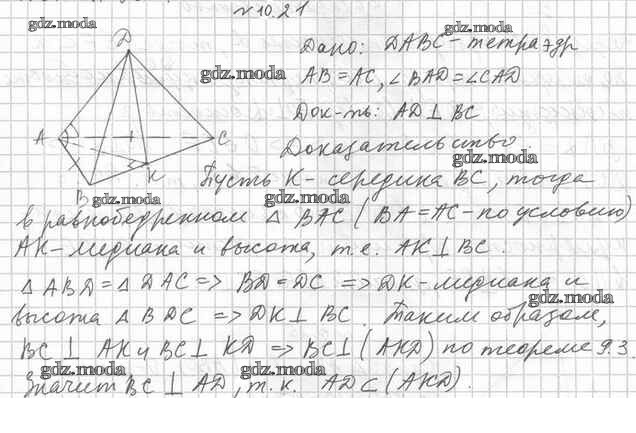 №10.21
Дано: DABC - тетраэдр
AB = AC, ∠BAD = ∠CAD
Док-ть: AD ⊥ BC
Доказательство.
Пусть K - середина BC, тогда
в равнобедренном △ BAC (BA = AC - по условию)
AK - медиана и высота, т.е. AK ⊥ BC.
△ ABD = △ DAC => BD = DC => DK - медиана и
высота △ BDC => DK ⊥ BC. Таким образом,
BC ⊥ AK и BC ⊥ KD => BC ⊥ (AKD) по теореме 9.3.
Значит BC ⊥ AD, т.к. AD ⊂ (AKD).
D
A
C
B
K
gdz.moda
gdz.moda
gdz.moda
gdz.moda
gdz.moda
gdz.moda
gdz.moda
gdz.moda
gdz.moda
gdz.moda